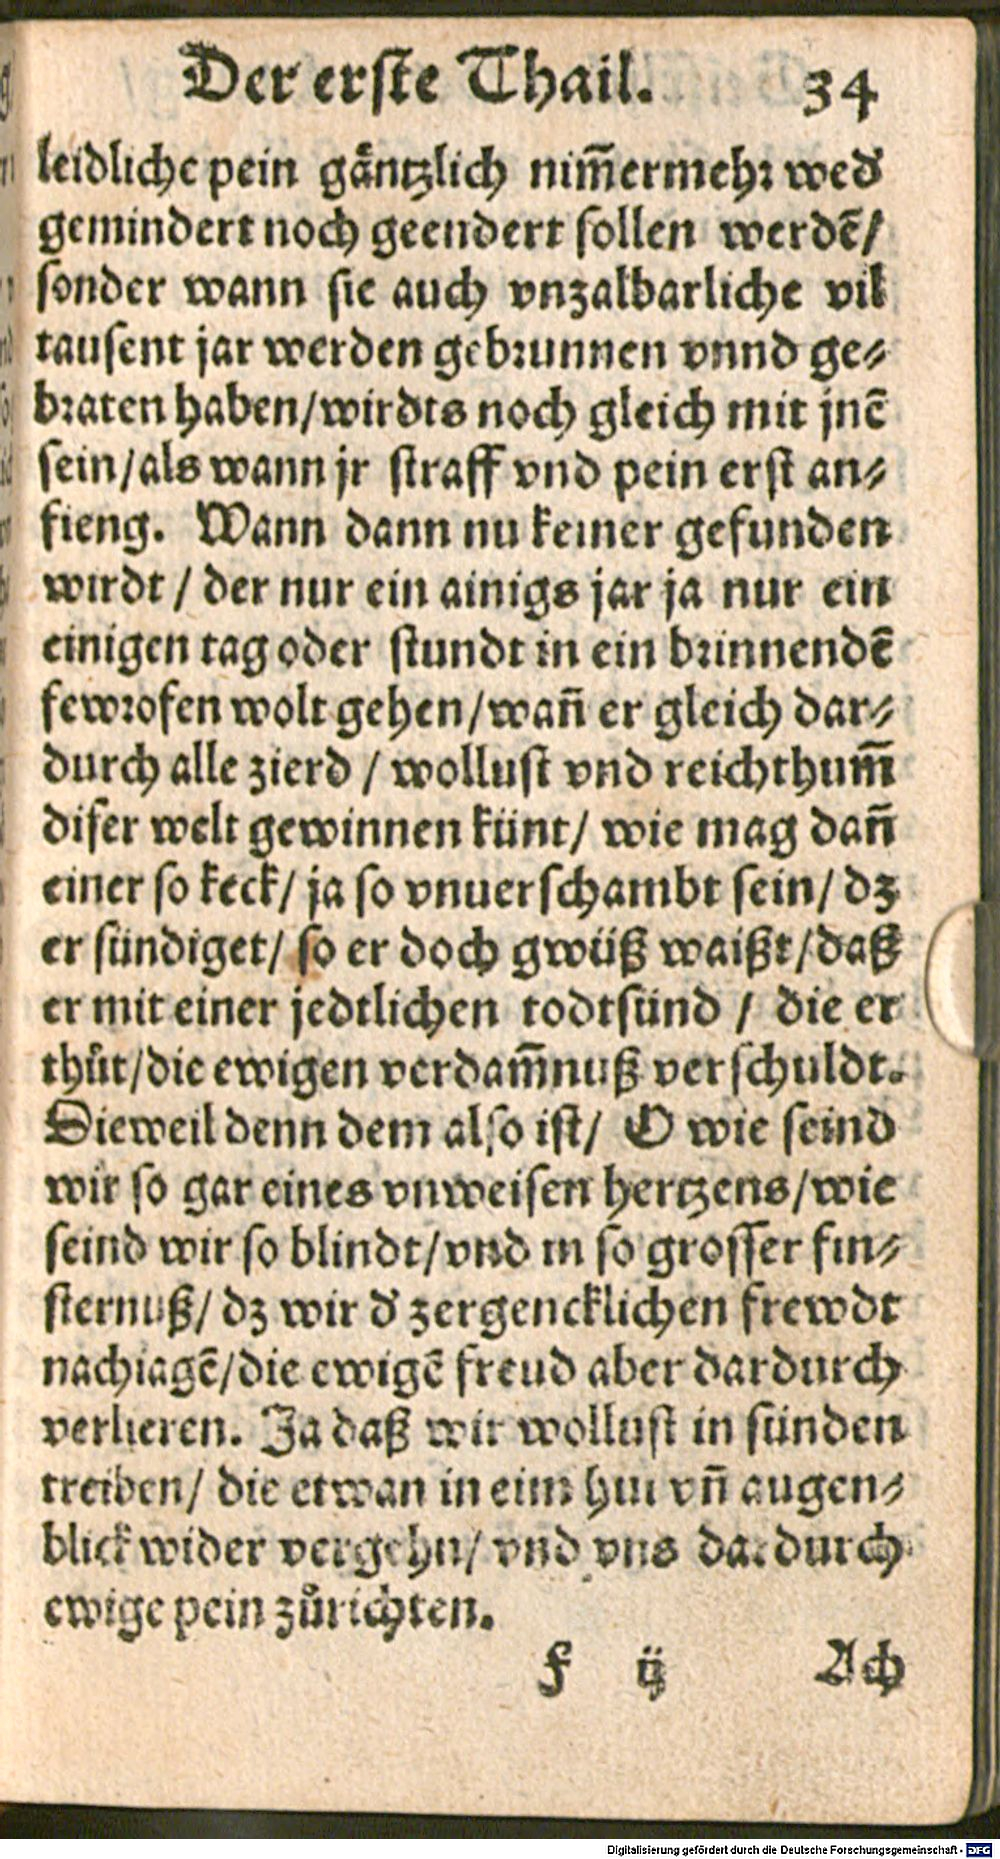 Der erste Thail. 34
leidliche pein gäntzlich nim̃ermehr wed'
gemindert noch geendert sollen werdẽ/
sonder wann sie auch vnzalbarliche vil
tausent jar werden gebrunnen vnnd ge⸗
braten haben/wirdts noch gleich mit jnẽ
sein/als wann jr straff vnd pein erst an⸗
fieng. Wann dann nu keiner gefunden
wirdt / der nur ein ainigs jar ja nur ein
einigen tag oder stundt in ein brinnendẽ
fewrofen wolt gehen/wañ er gleich dar⸗
durch alle zierd / wollust vnd reichthum̃
diser welt gewinnen künt/ wie mag dañ
einer so keck/ ja so vnuerschambt sein/ dz
er sündiget/ so er doch gwüß waißt/daß
er mit einer jedtlichen todtsünd / die er
thůt/die ewigen verdam̃nuß verschuldt.
Dieweil denn dem also ist/ O wie seind
wir so gar eines vnweisen hertzens/wie
seind wir so blindt/vnd in so grosser fin⸗
sternuß/ dz wir d' zergencklichen frewdt
nachjagẽ/die ewigẽ freud aber dardurch
verlieren. Ja daß wir wollust in sünden
treiben/ die etwan in eim hui vñ augen⸗
blick wider vergehn/ vnd vns dardurch
ewige pein zůrichten.
f ij Ach
Digitalisierung gefördert durch die Deutsche Forschungsgemeinschaft - DFG